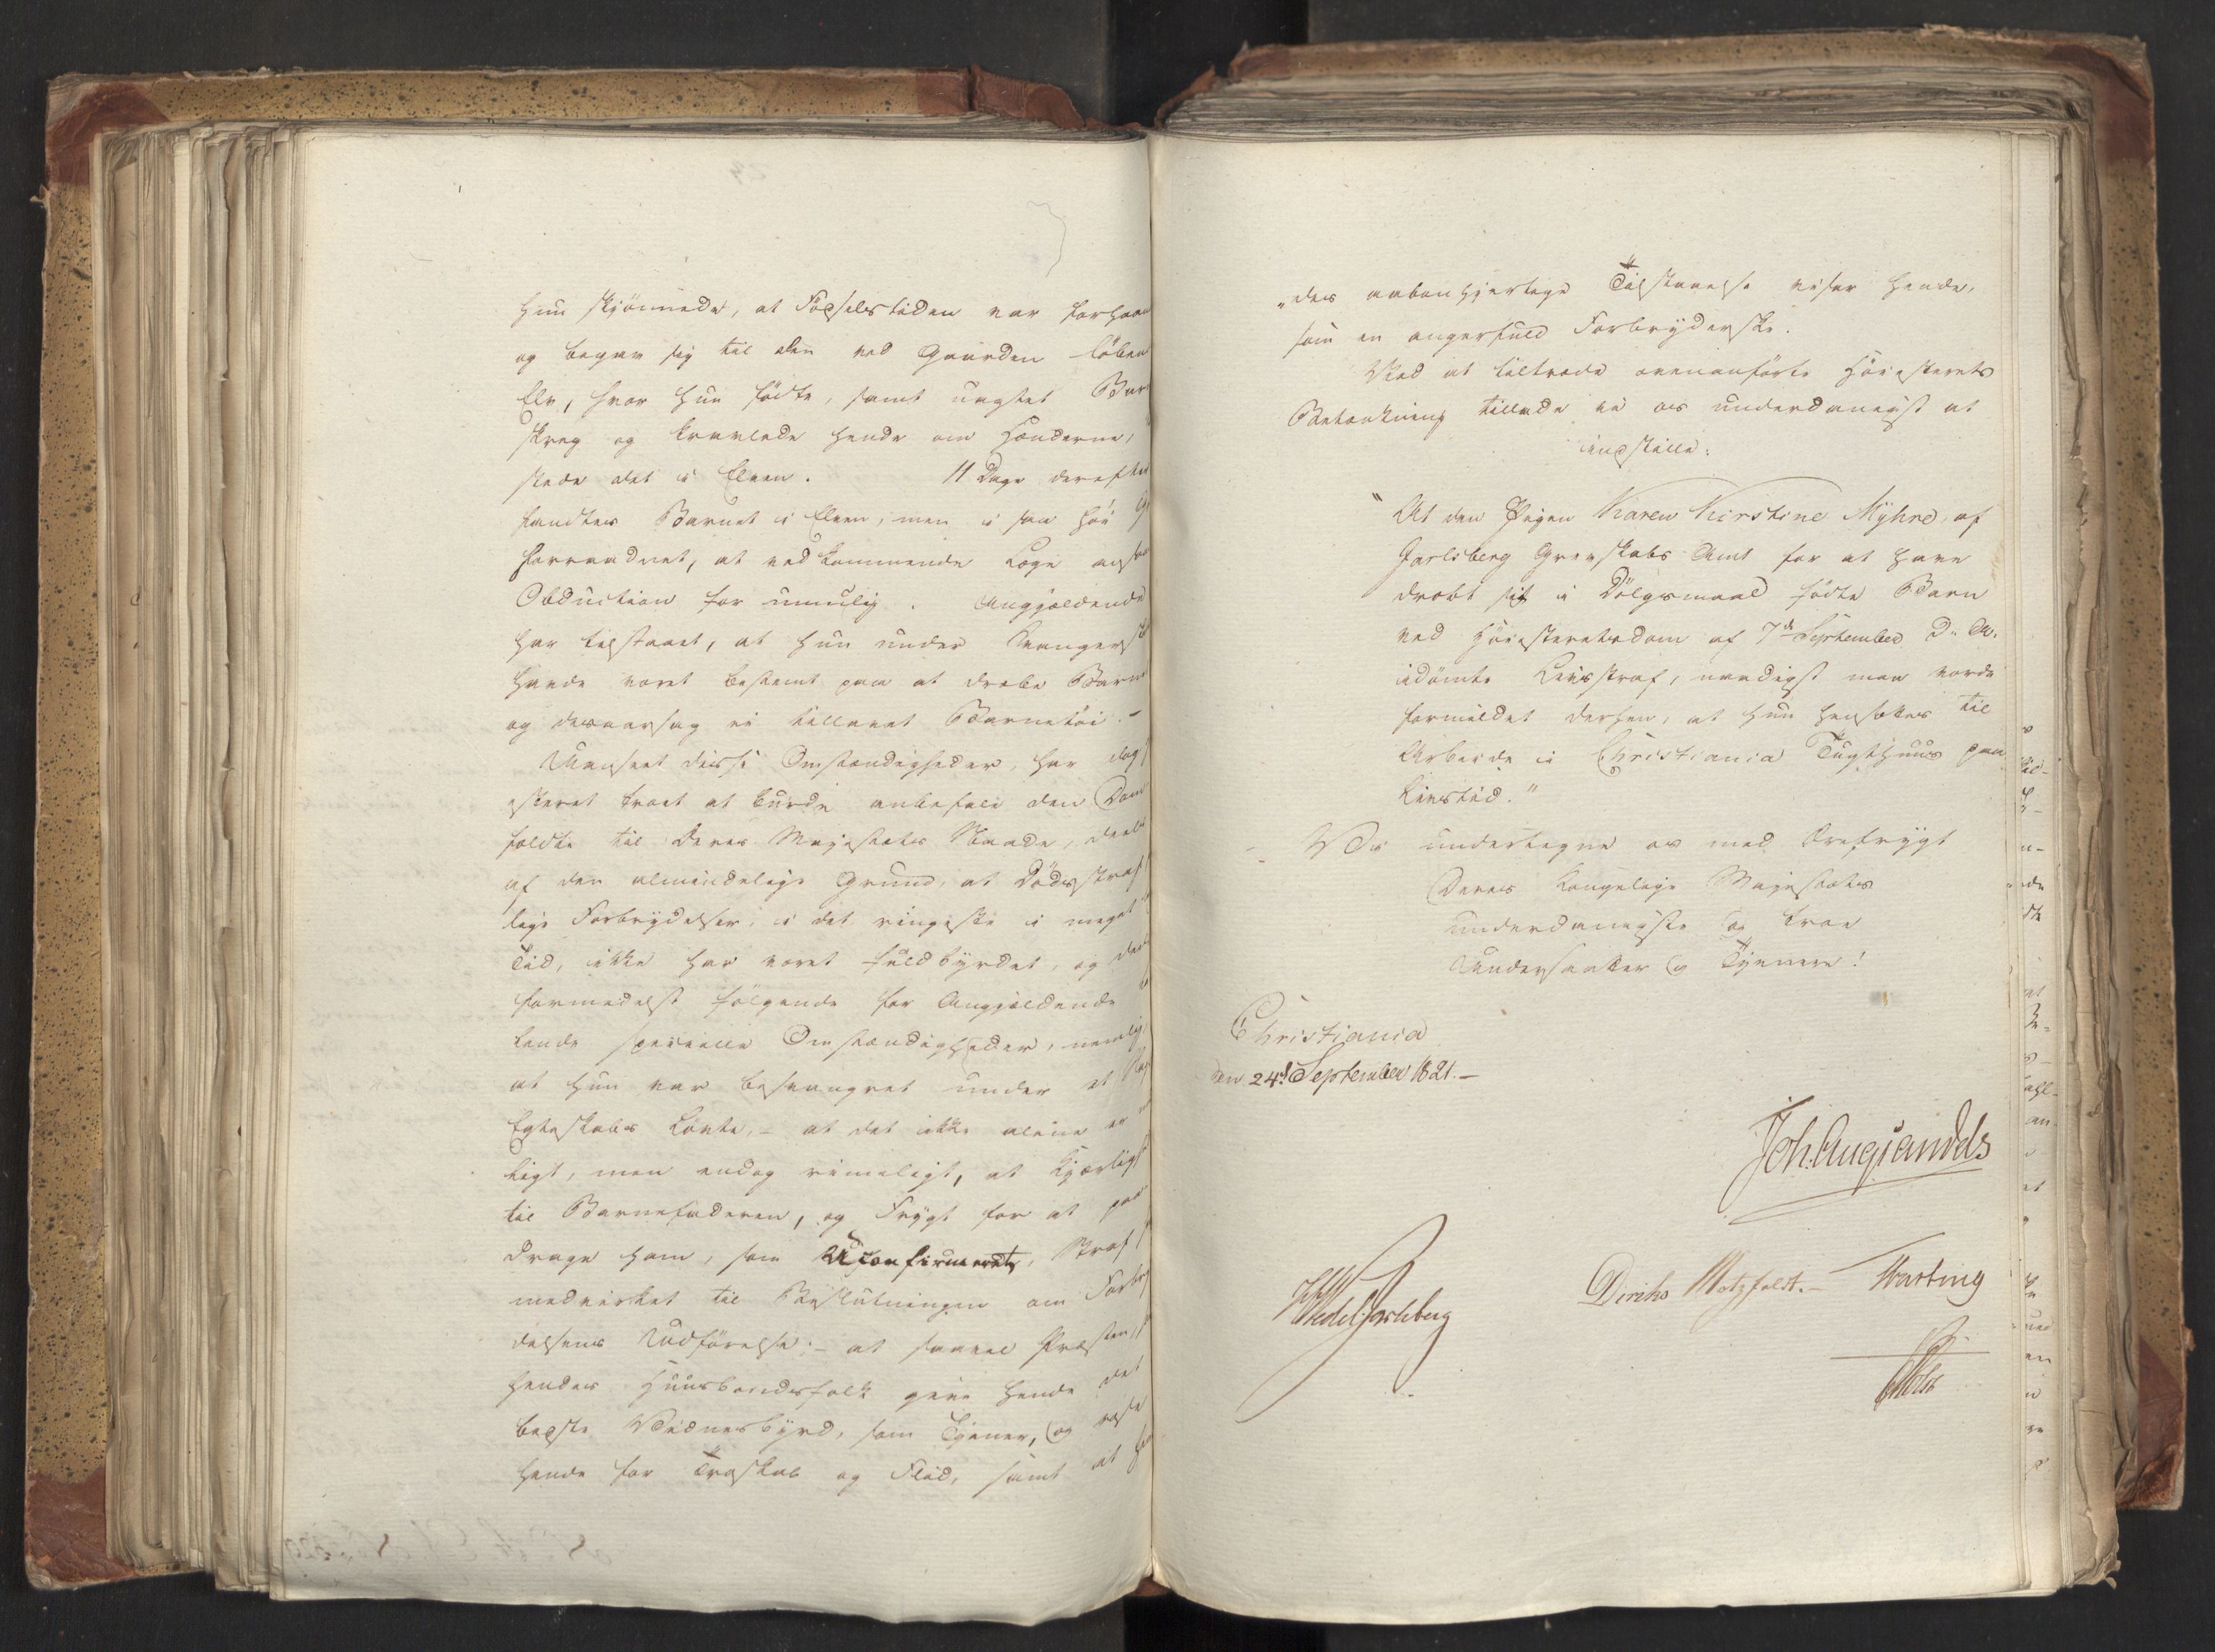 hun skjönnede, at Födselstiden var forhaan
og begav sig til den ved Gaarden löben
Elv, hvor hun födte, samt uagtet Bar
skreg og kravlede hende om Hænderne,
det i Elven. 11 Dage dereften
fandtes Barnet i Elven, men i saa höi
forraadnet, at vedkommende Læge ansaa
Obduction for umulig. Angjældende
har tilstaaet, at hun under Svangersk
havde været bestemt paa at dræbe Barne
og desaarsag ei tillavet Barnetöi. –
Uanseet disse Omstændigheder, har dog
esteret troet at burde anbefale den Dom
fældte til Deres Majestæts Naade, deels
af den almindelige Grund, at Dödsstraf
lige Forbrydelser, i det ringeste i meget
Tid, ikke har været fuldbyrdet, og deels
formedelst fölgende for Angjældende
lende specielle Omstændigheder, nemlig
at hun var besvangret under et
Egteskabs Lövte, – at det ikke alene er
ligt, men endog rimeligt, at Kjærligh
til Barnefaderen, og Frygt for at paa-
drage ham, som Uconfirmeret, Straf
medvirket til Beslutningen om Forbry
delsens Udförelse; – at saavel Præsten,
hendes Huusbondsfolk give hende det
bedste Vidnesbyrd, som Tjener, og rose
hende for Troskab og Flid, samt at
„des aabenhjertige Tilstaaelse viser hende,
som en angerfuld Forbryderske.
Ved at tiltræde ovenanförte Höiesterets
Betænkning tillade vi os underdanigst at
indstille:
"At den Pigen Karen Kirstine Myhre, af
Jarlsberg Grevskabs Amt for at have
dræbt sit i Dölgsmaal födte Barn
ved Höiesteretsdom af 7de September d. A.
idömte Livsstraf, naadigst maa vorde
formildet derhen, at hun hensættes til
Arbeide i Christiania Tugthuus paa
Livstid."
Vi undertegne os med Ærefrygt
Deres Kongelige Majestæts
underdanigste og troe
Undersaatter og Tjenere!
Christiania
den 24d September 1821. –
Joh. Aug. Sandels
HWedel Jarlsberg
Diriks Motzfeldt. – Krohting
Holst